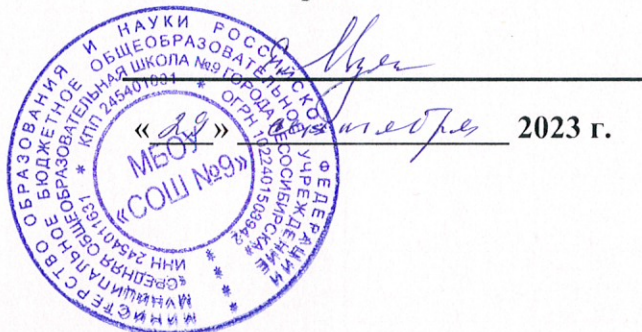 « 29 » сентября 2023 г.
МИНИСТЕРСТВО ОБРАЗОВАНИЯ И НАУКИ РОССИЙСКОЙ ФЕДЕРАЦИИ
МУНИЦИПАЛЬНОЕ БЮДЖЕТНОЕ ОБЩЕОБРАЗОВАТЕЛЬНОЕ УЧРЕЖДЕНИЕ
«СРЕДНЯЯ ОБЩЕОБРАЗОВАТЕЛЬНАЯ ШКОЛА №9 ГОРОДА ЛЕСОСИБИРСКА»
ИНН 2454011631 * КПП 245401001 * ОГРН 1022401509942
МБОУ
«СОШ №9»